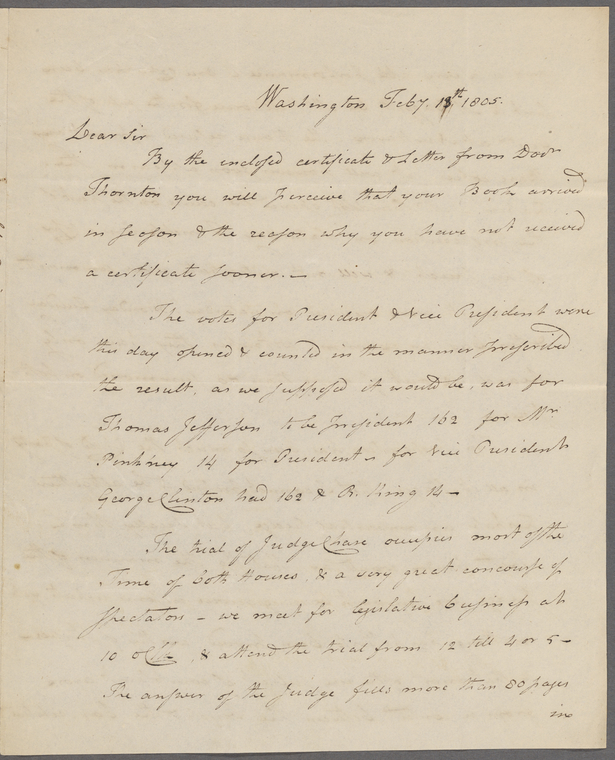 Washington Feby. 13th 1805.
Dear Sir
By the enclosed certificate & Letter from Doctr
Thornton you will perceive that your Book arrived
in season & the reason why you have not received
a certificate sooner. —
The votes for President & Vice President were
this day opened & counted in the manner prescribed
the result, as we supposed it would be, was for
Thomas Jefferson to be President 162 for Mr.
Pinkney 14 for President — for Vice President
George Clinton had 162 & R. King 14 —
The trial of Judge Chase occupies most of the
Time of both Houses, & a very great concourse of
Spectators — we meet for legislative business at
10 oClk & attend the trial from 12 till 4 or 5 —
The answer of the Judge fills more than 80 pages
in